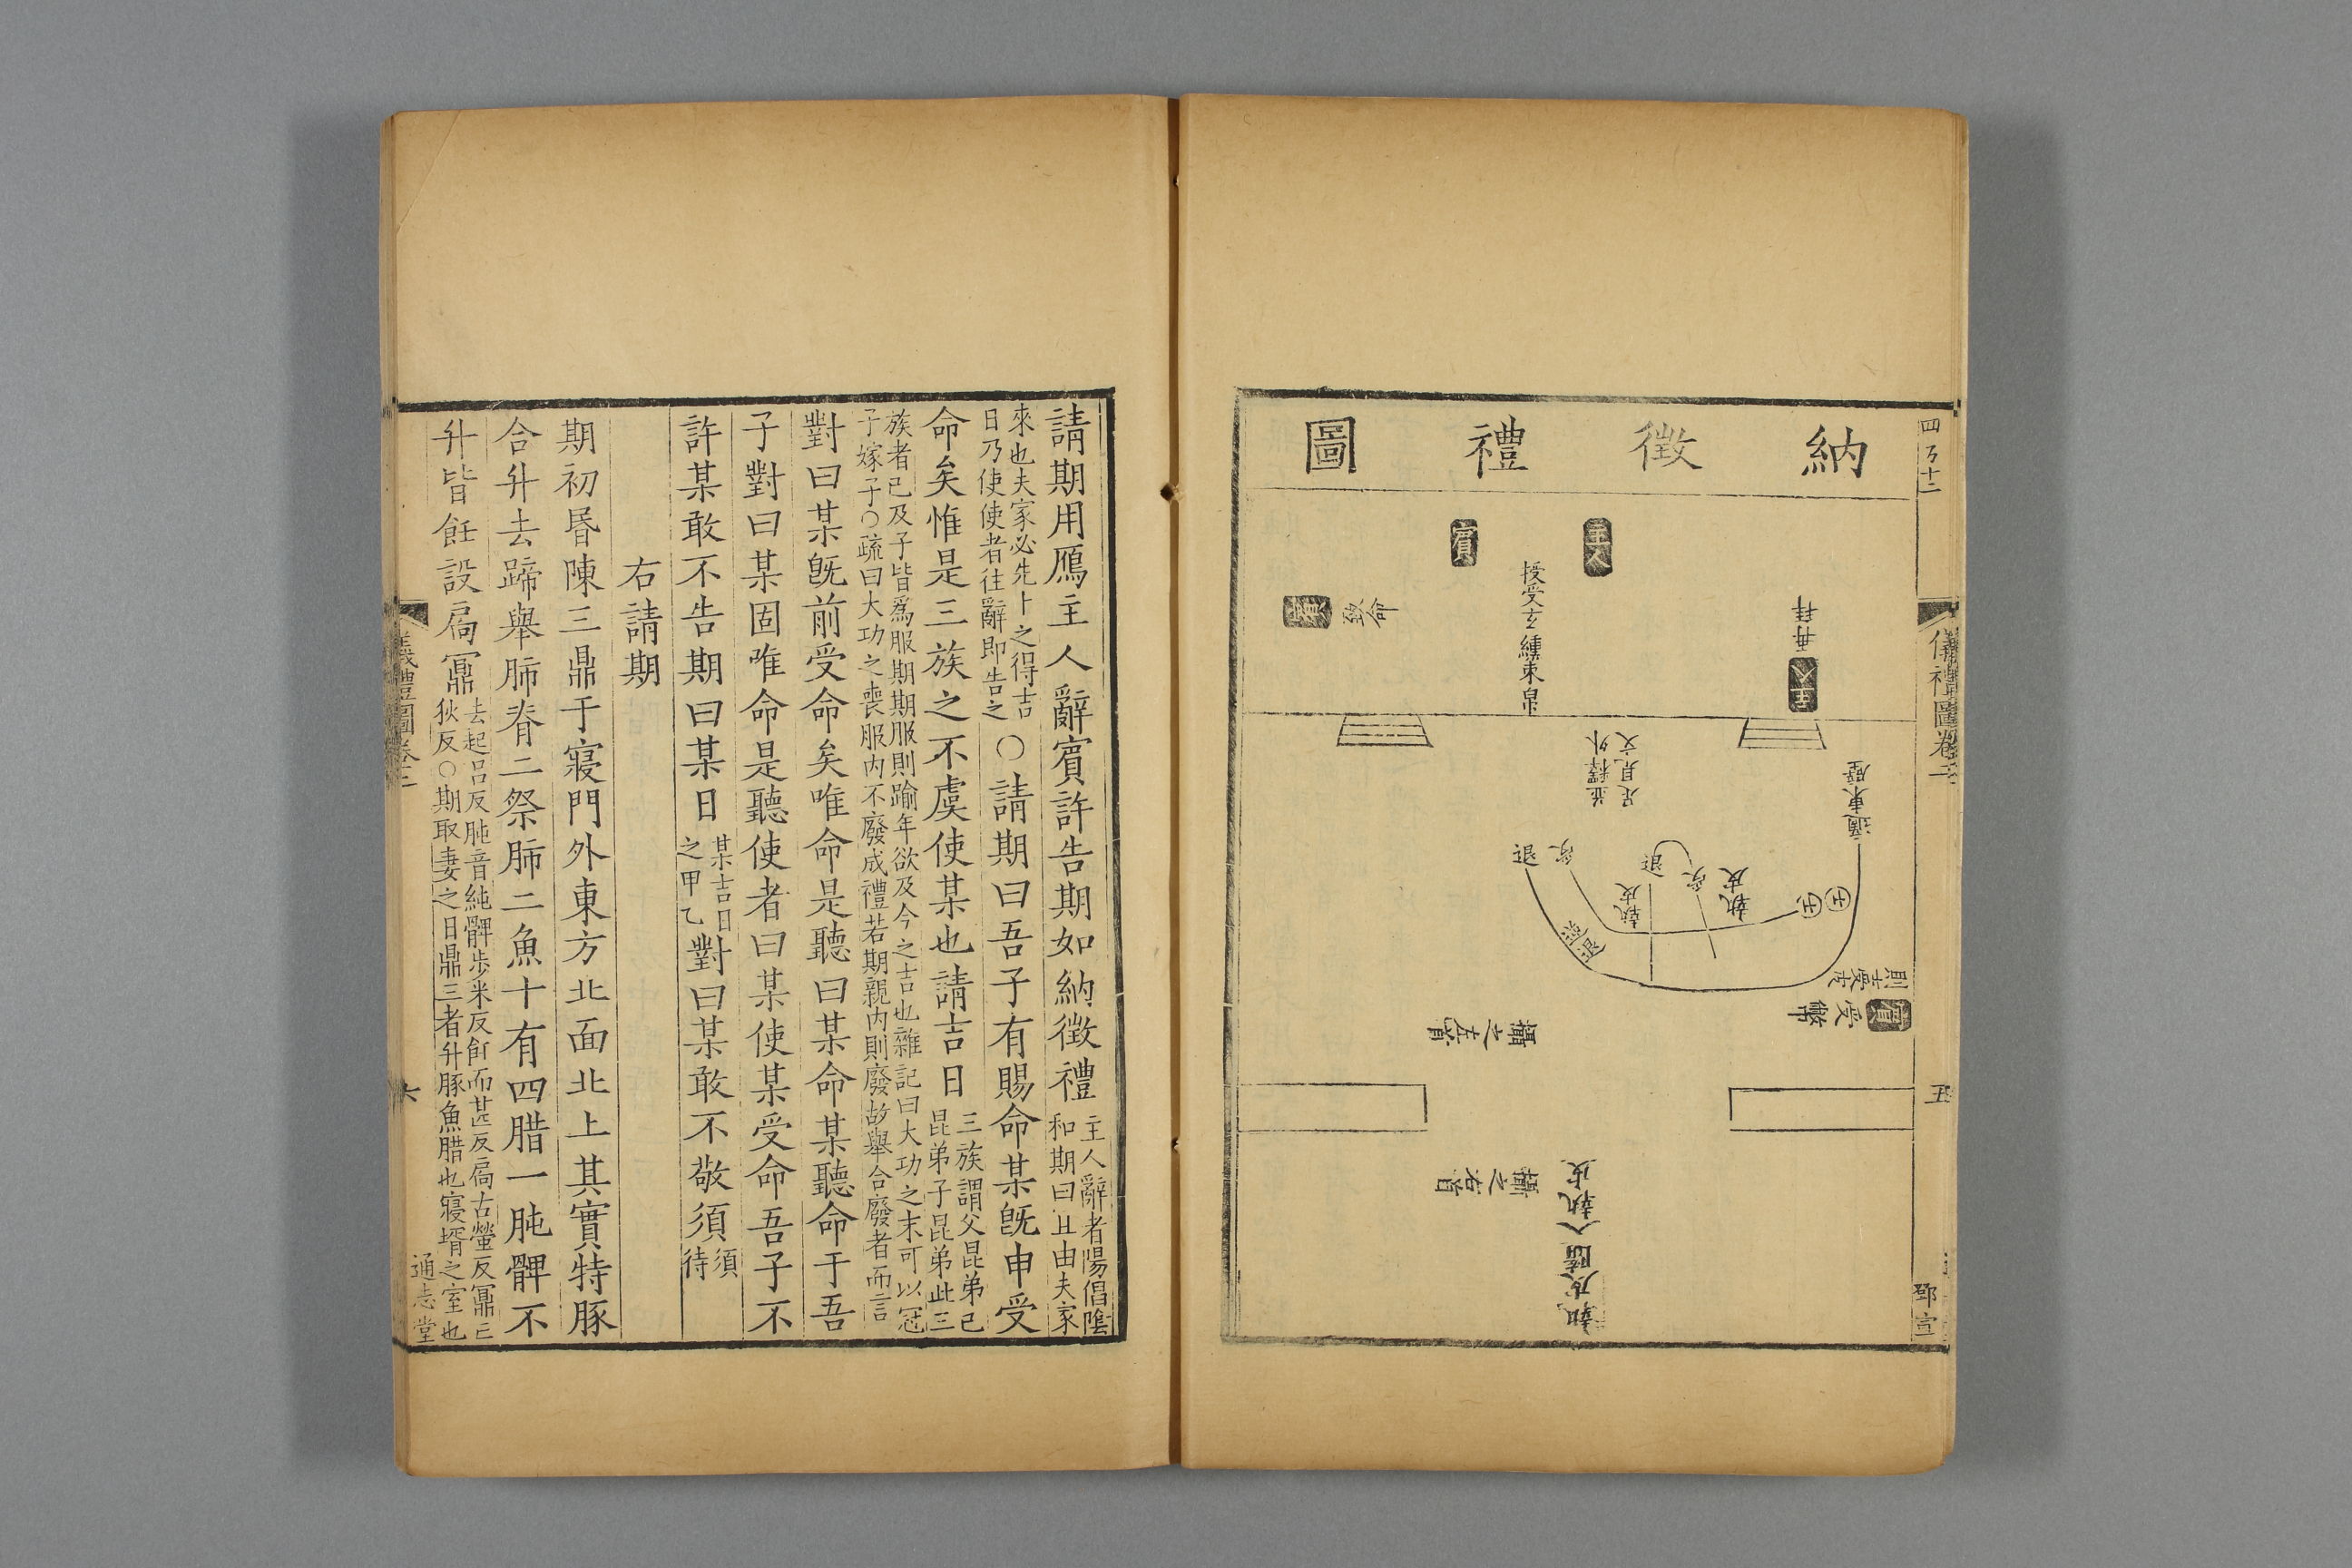 納徵禮圖
賓
主人
賓
致命
授受玄纁束帛
主人
再拜
外釋並
文見足
適東壁
逆
退
執皮
執皮
士
士
則士受皮
賓
受幣
攝之左首
攝之右首
執皮隨入執皮
儀禮圖卷二
五
鄧宣
請期用鴈主人辭賓許告期如納徵禮主人辭者陽倡陰
和期日宜由夫家
來也夫家必先卜之得吉
日乃使使者往辭即告之○請期曰吾子有賜命某既申受
命矣惟是三族之不虞使某也請吉日三族謂父昆弟己
昆弟子昆弟此三
族者己及子皆爲服期期服則踰年欲及今之吉也雜記曰大功之末可以冠
子嫁子○疏曰大功之喪服内不廢成禮若期親内則廢故舉合廢者而言
對曰某既前受命矣唯命是聽曰某命某聽命于吾
子對曰某固唯命是聽使者曰某使某受命吾子不
許某敢不告期曰某日某吉日
之甲乙對曰某敢不敬須須
待
右請期
期初昬陳三鼎于寢門外東方北面北上其實特豚
合升去蹄舉肺脊二祭肺二魚十有四腊一肫髀不
升皆飪設扃鼏去起呂反肫音純髀步米反飪而甚反扃古螢反鼏亡
狄反○期取妻之日鼎三者升豚魚腊也寢壻之室也
儀禮圖卷二
六
通志堂